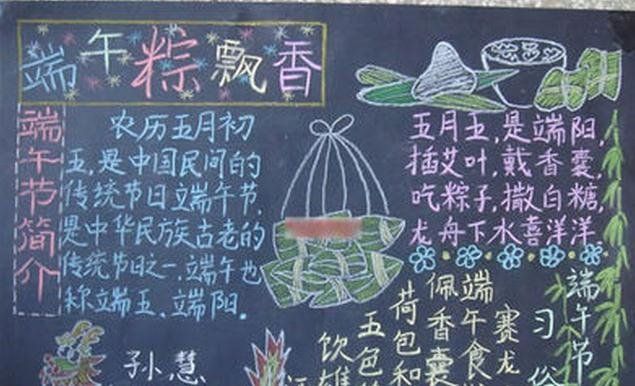 端午粽飘香
端午节简介
农历五月初
五,是中国民间的
传统节日端午节,
是中华民族古老的
传统节日之一,端午也
称端五、端阳。
五月五,是端阳,
插艾叶,戴香囊,
吃粽子,撒白糖,
龙舟下水喜洋洋
端午节
习俗
赛龙
端午食
佩香囊
荷包和
五包
饮雄
孙慧